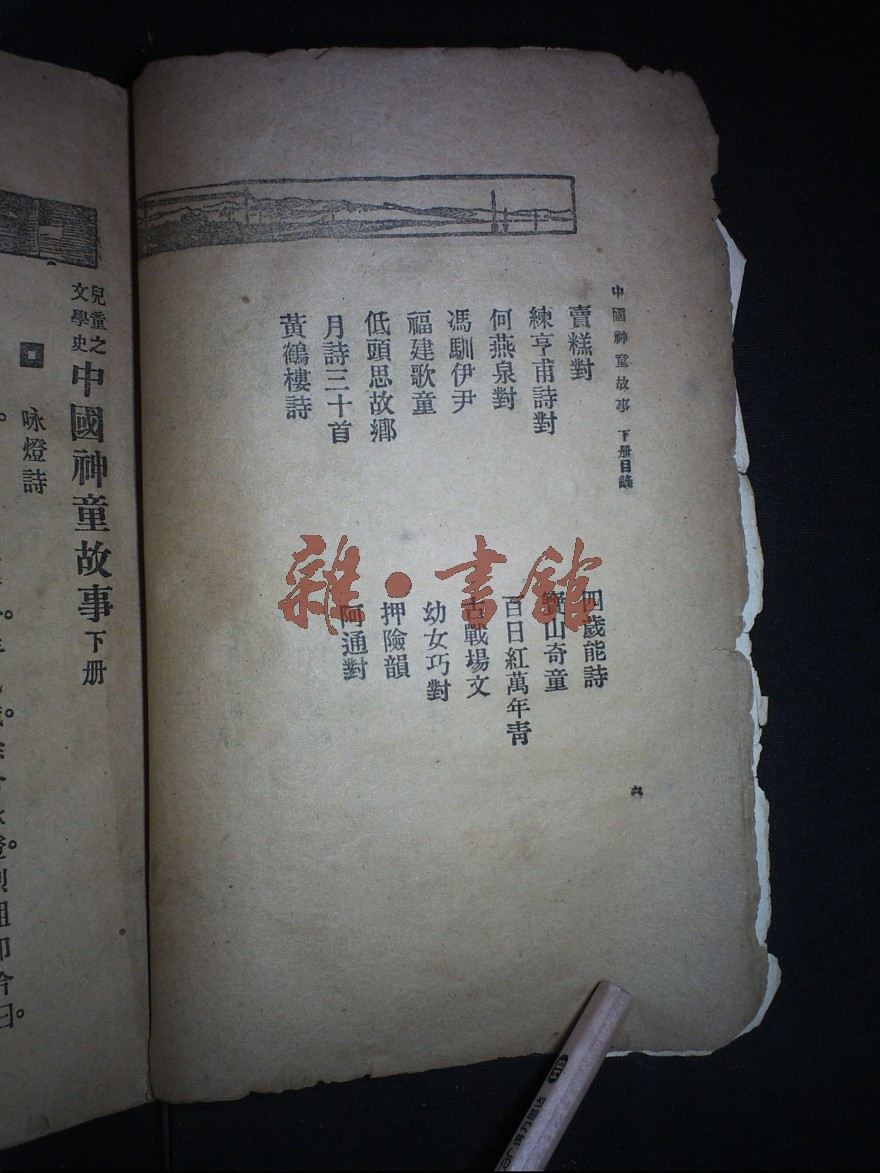 中國神童故事 下册目錄
賣糕對
練亨甫詩對
何燕泉對
馮馴伊尹
福建歌童
低頭思故鄉
月詩三十首
黃鶴樓詩
四歲能詩
寶山奇童
百日紅萬年青
古戰場文
幼女巧對
押險韻
阿通對
六
雜·書館
兒童之
文學史
中國神童故事 下册
咏燈詩
HB